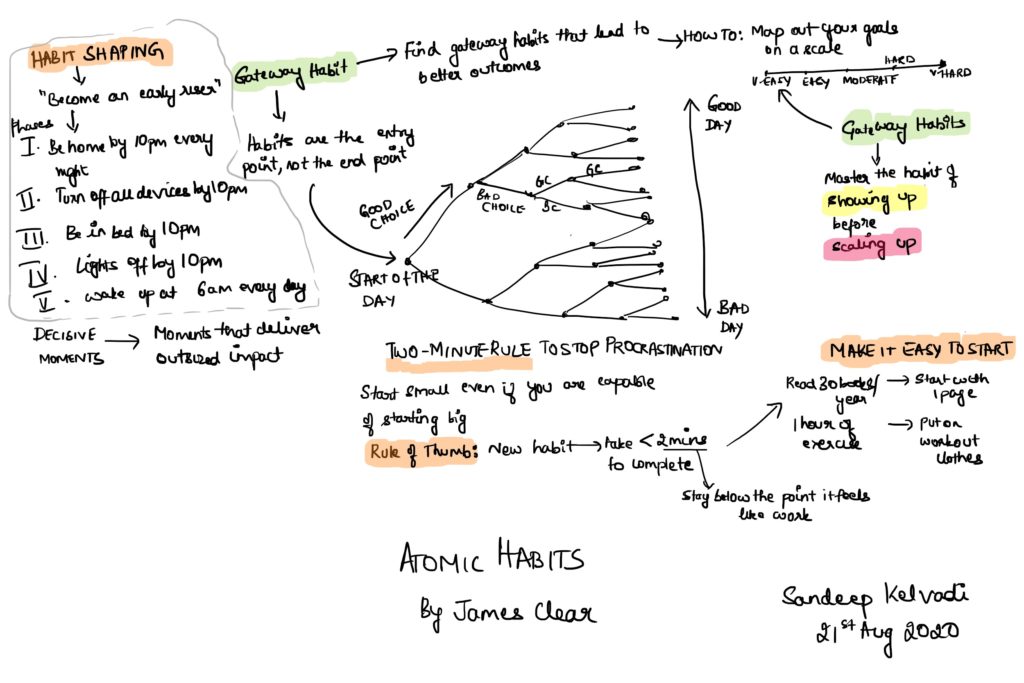 HABIT SHAPING
"Become an early riser"
Phases
I. Be home by 10pm every
night
II. Turn off all devices by 10pm
III. Be in bed by 10pm
IV. Lights off by 10pm
V. wake up at 6am every day
DECISIVE
MOMENTS
Moments that deliver
outsized impact
Gateway Habit
Find gateway habits that lead to
better outcomes
HOW TO: Map out your goals
on a scale
HARD
V-EASY EASY MODERATE V-HARD
Gateway Habits
Master the habit of
showing up
before
scaling up
Habits are the entry
point, not the end point
START OF THE
DAY
GOOD
CHOICE
BAD
CHOICE
GC
BC
GC
GOOD
DAY
BAD
DAY
TWO-MINUTE RULE TO STOP PROCRASTINATION
Start small even if you are capable
of starting big
Rule of Thumb: New habit take < 2 mins
to complete
Stay below the point it feels
like work
MAKE IT EASY TO START
Read 30 books/
year
Start with
1 page
1 hour of
exercise
Put on
workout
clothes
ATOMIC HABITS
By James Clear
Sandeep Kelvadi
21st Aug 2020